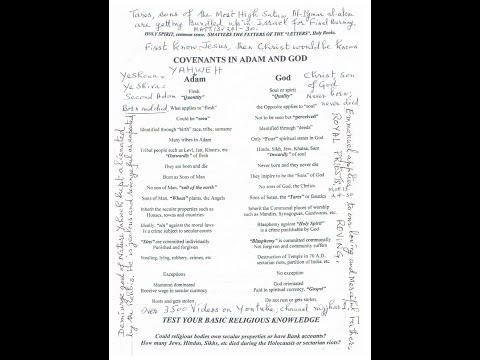 Tares, sons of the Most High Satan,
are getting Bundled up in Israel for Final Burning.
MATT13V24-30.
HOLY SPIRIT, common sense, SHATTERS THE FETTERS OF THE "LETTERS", Holy Books.
First know Jesus, then Christ would be known
COVENANTS IN ADAM AND GOD
YAHWEH
Adam
God
Second Adam
Born and died
Christ son
of God.
Never born;
never died
Flesh
Soul or spirit
"Quantity"
"Quality"
What applies to "flesh"
the Opposite applies to "soul"
Could be "seen"
Not to be seen but "perceived"
Identified through "birth" race, tribe, surname
Identified through "deeds"
Many tribes in Adam
Only "Four" spiritual states in God
Tribal people such as Levi, Jatt, Khatris, etc
Hindu, Sikh, Jew, Khalsa, Sant
"Outwardly" of flesh
"Inwardly" of soul
They are born and die
Never born and they never die
Born as Sons of Man
They inspire to be the "Sons" of God
No son of Man, "salt of the earth"
No sons of God, the Christs
Sons of Man, "Wheat" plants, the Angels
Sons of Satan, the "Tares" or fanatics
Inherit the secular properties such as
Inherit the Communal places of worship
Houses, towns and countries
such as Mandirs, Synagogues, Gurdwaras, etc.
Ideally, "sin" against the moral laws
Blasphemy against "Holy Spirit"
is a crime subject to secular courts
is a crime punishable by God
"Sins" are committed individually
"Blasphemy" is committed communally
Punished and forgiven
Not forgiven and community suffers
Stealing, lying, robbery, crimes, etc
Destruction of Temple in 70 A.D.,
sectarian riots, partition of India, etc.
Exceptions
No exception
Mammon dominated
God orientated
Receive wage in secular currency
Paid in spiritual currency, "Gospel"
Roots and gets stolen
Do not rust or gets stolen.
Over 3500 Videos on Youtube; channel nijjhar1.
TEST YOUR BASIC RELIGIOUS KNOWLEDGE
Could religious bodies own secular properties or have Bank accounts?
How many Jews, Hindus, Sikhs, etc died during the Holocausts or sectarian riots?
Emmanuel applies to our loving and Merciful Father.
ROYAL PRIESTS, ROVING.